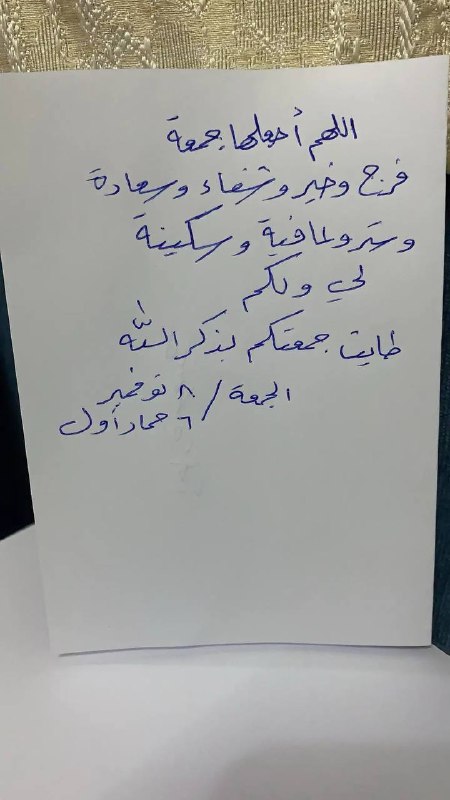 اللهم أجعلها جمعة
فرج وخير وشفاء وسعادة
وستر ولمافية وسكينة
لي ولكم
طابت جمعتكم بذكر الله
الجمعة / ٨ نوفمبر
٦ جماد أول